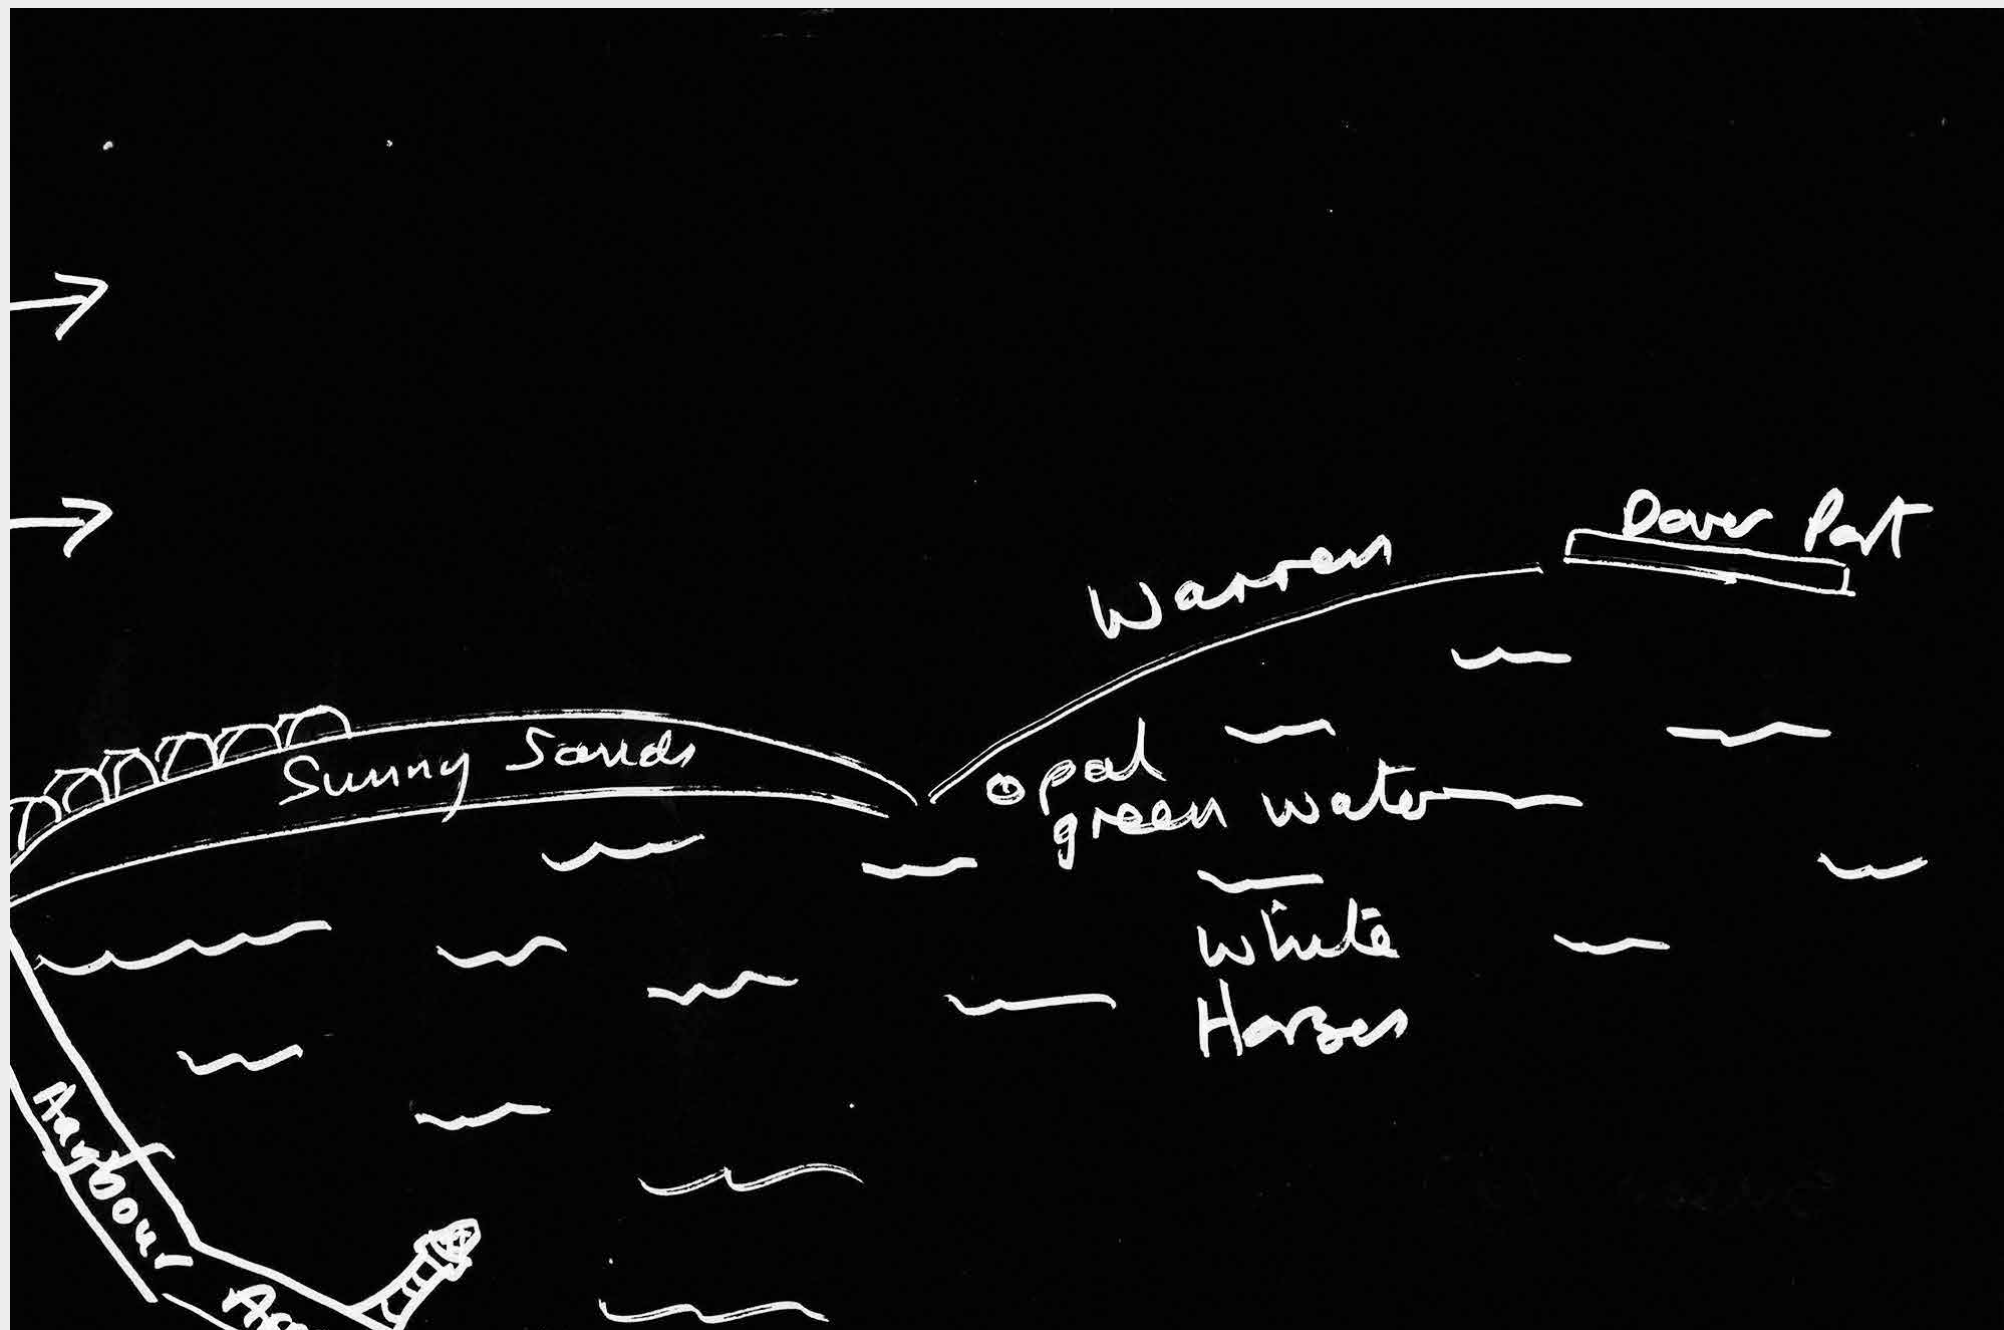 Dover Port
Warren
Sunny Sands
Opal
green water
White
Horses
Harbour